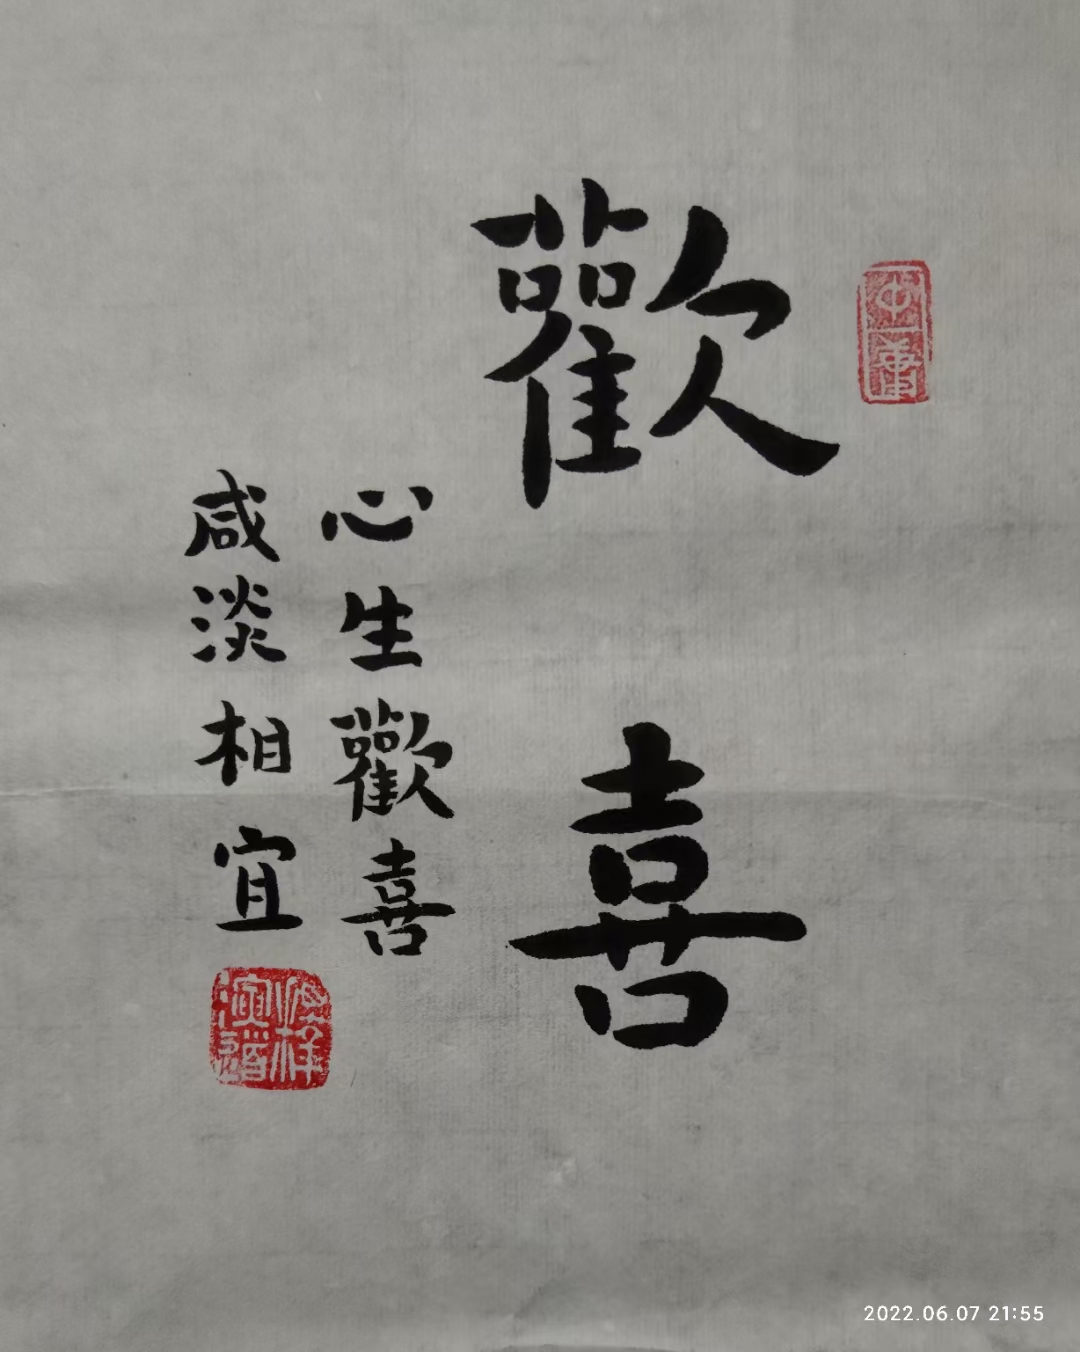 歡喜
心生歡喜
咸淡相宜
2022.06.07 21:55